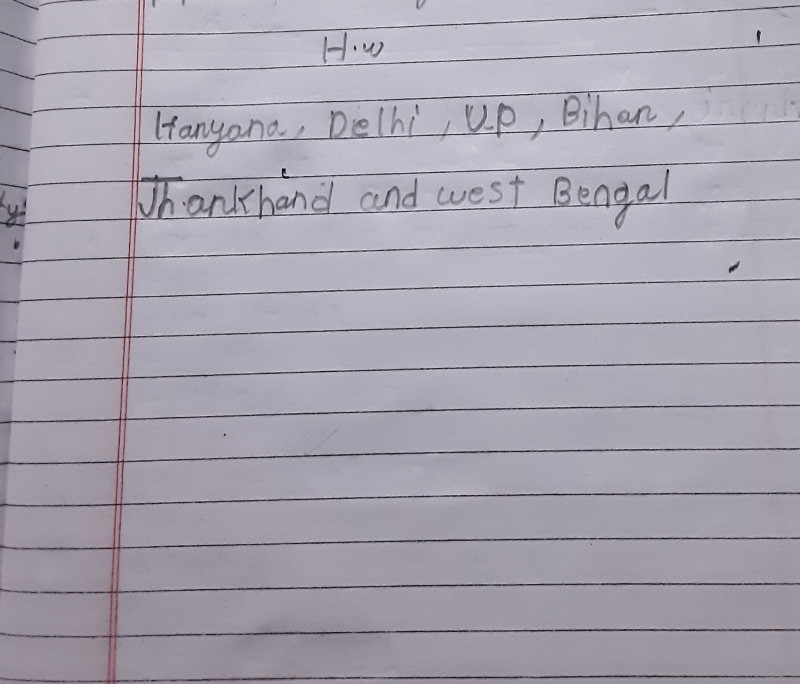 H.w
Haryana, Delhi, U.P, Bihar,
Jharkhand and west Bengal